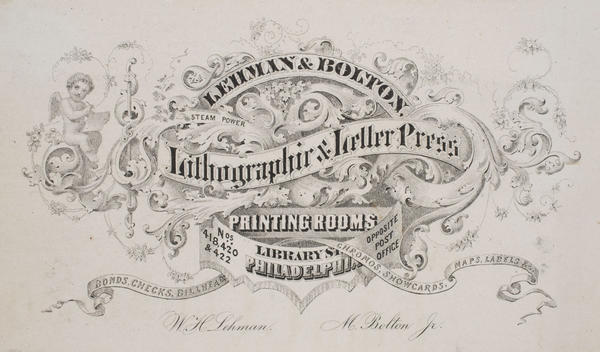 LEHMAN & BOLTON,
STEAM POWER
Lithographic & Letter Press
PRINTING ROOMS
Nos. 418,420 & 422
LIBRARY St.
PHILADELPHIA
OPPOSITE POST OFFICE
BONDS, CHECKS, BILLHEADS
CHROMOS, SHOWCARDS,
MAPS, LABELS, &c.
W. H. Lehman.
M. Bolton Jr.